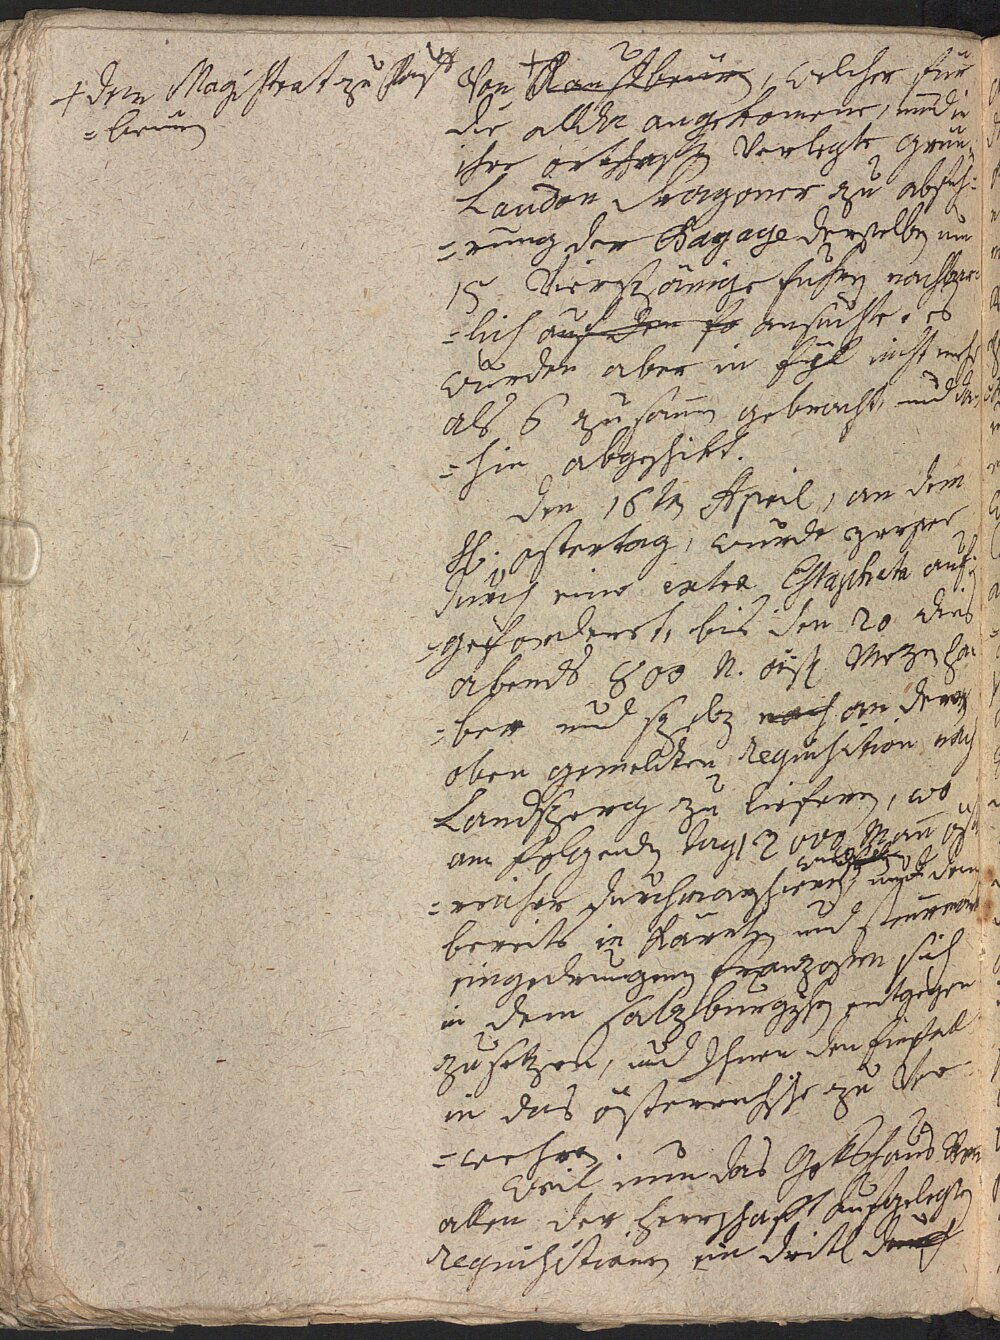 + dem Magistrat zu Kauf
= beuren
von + Kaufbeuren, welcher für
die allda angekomene, und in
ihre ortschaften verlegte grün
Laudon Dragoner zu abfüh=
=rung der Bagage derselben um
15 vierspänige fuhren nachbar=
=lich auf den so ansuchte. es
wurden aber in fyl nicht mehr
als 6 zusamen gebracht, und da=
=hin abgeschikt.
den 16ten April, an dem
hl. ostertag, wurde
durch eine extra Estaphete auf=
=gefordert, bis den 20 dies
abends 800 N. öst. Mezen ha=
=ber und nach an dem
oben gemeldten requisition nach
Landsperg zu liefern, wo
am folgenden tag 12000 Mann öst=
=reicher durchmarschierten und dem
bereits in Kärnten und steurmark
eingedrungenen franzosen sich
in dem salzburgischen entgegen
zusetzen, und Ihnen den Einfall
in das österreichische zu ver=
=wehren.
weil nun das Gottshaus von
allen der Herrschaft aufgelegten
requisitionen ein dritl